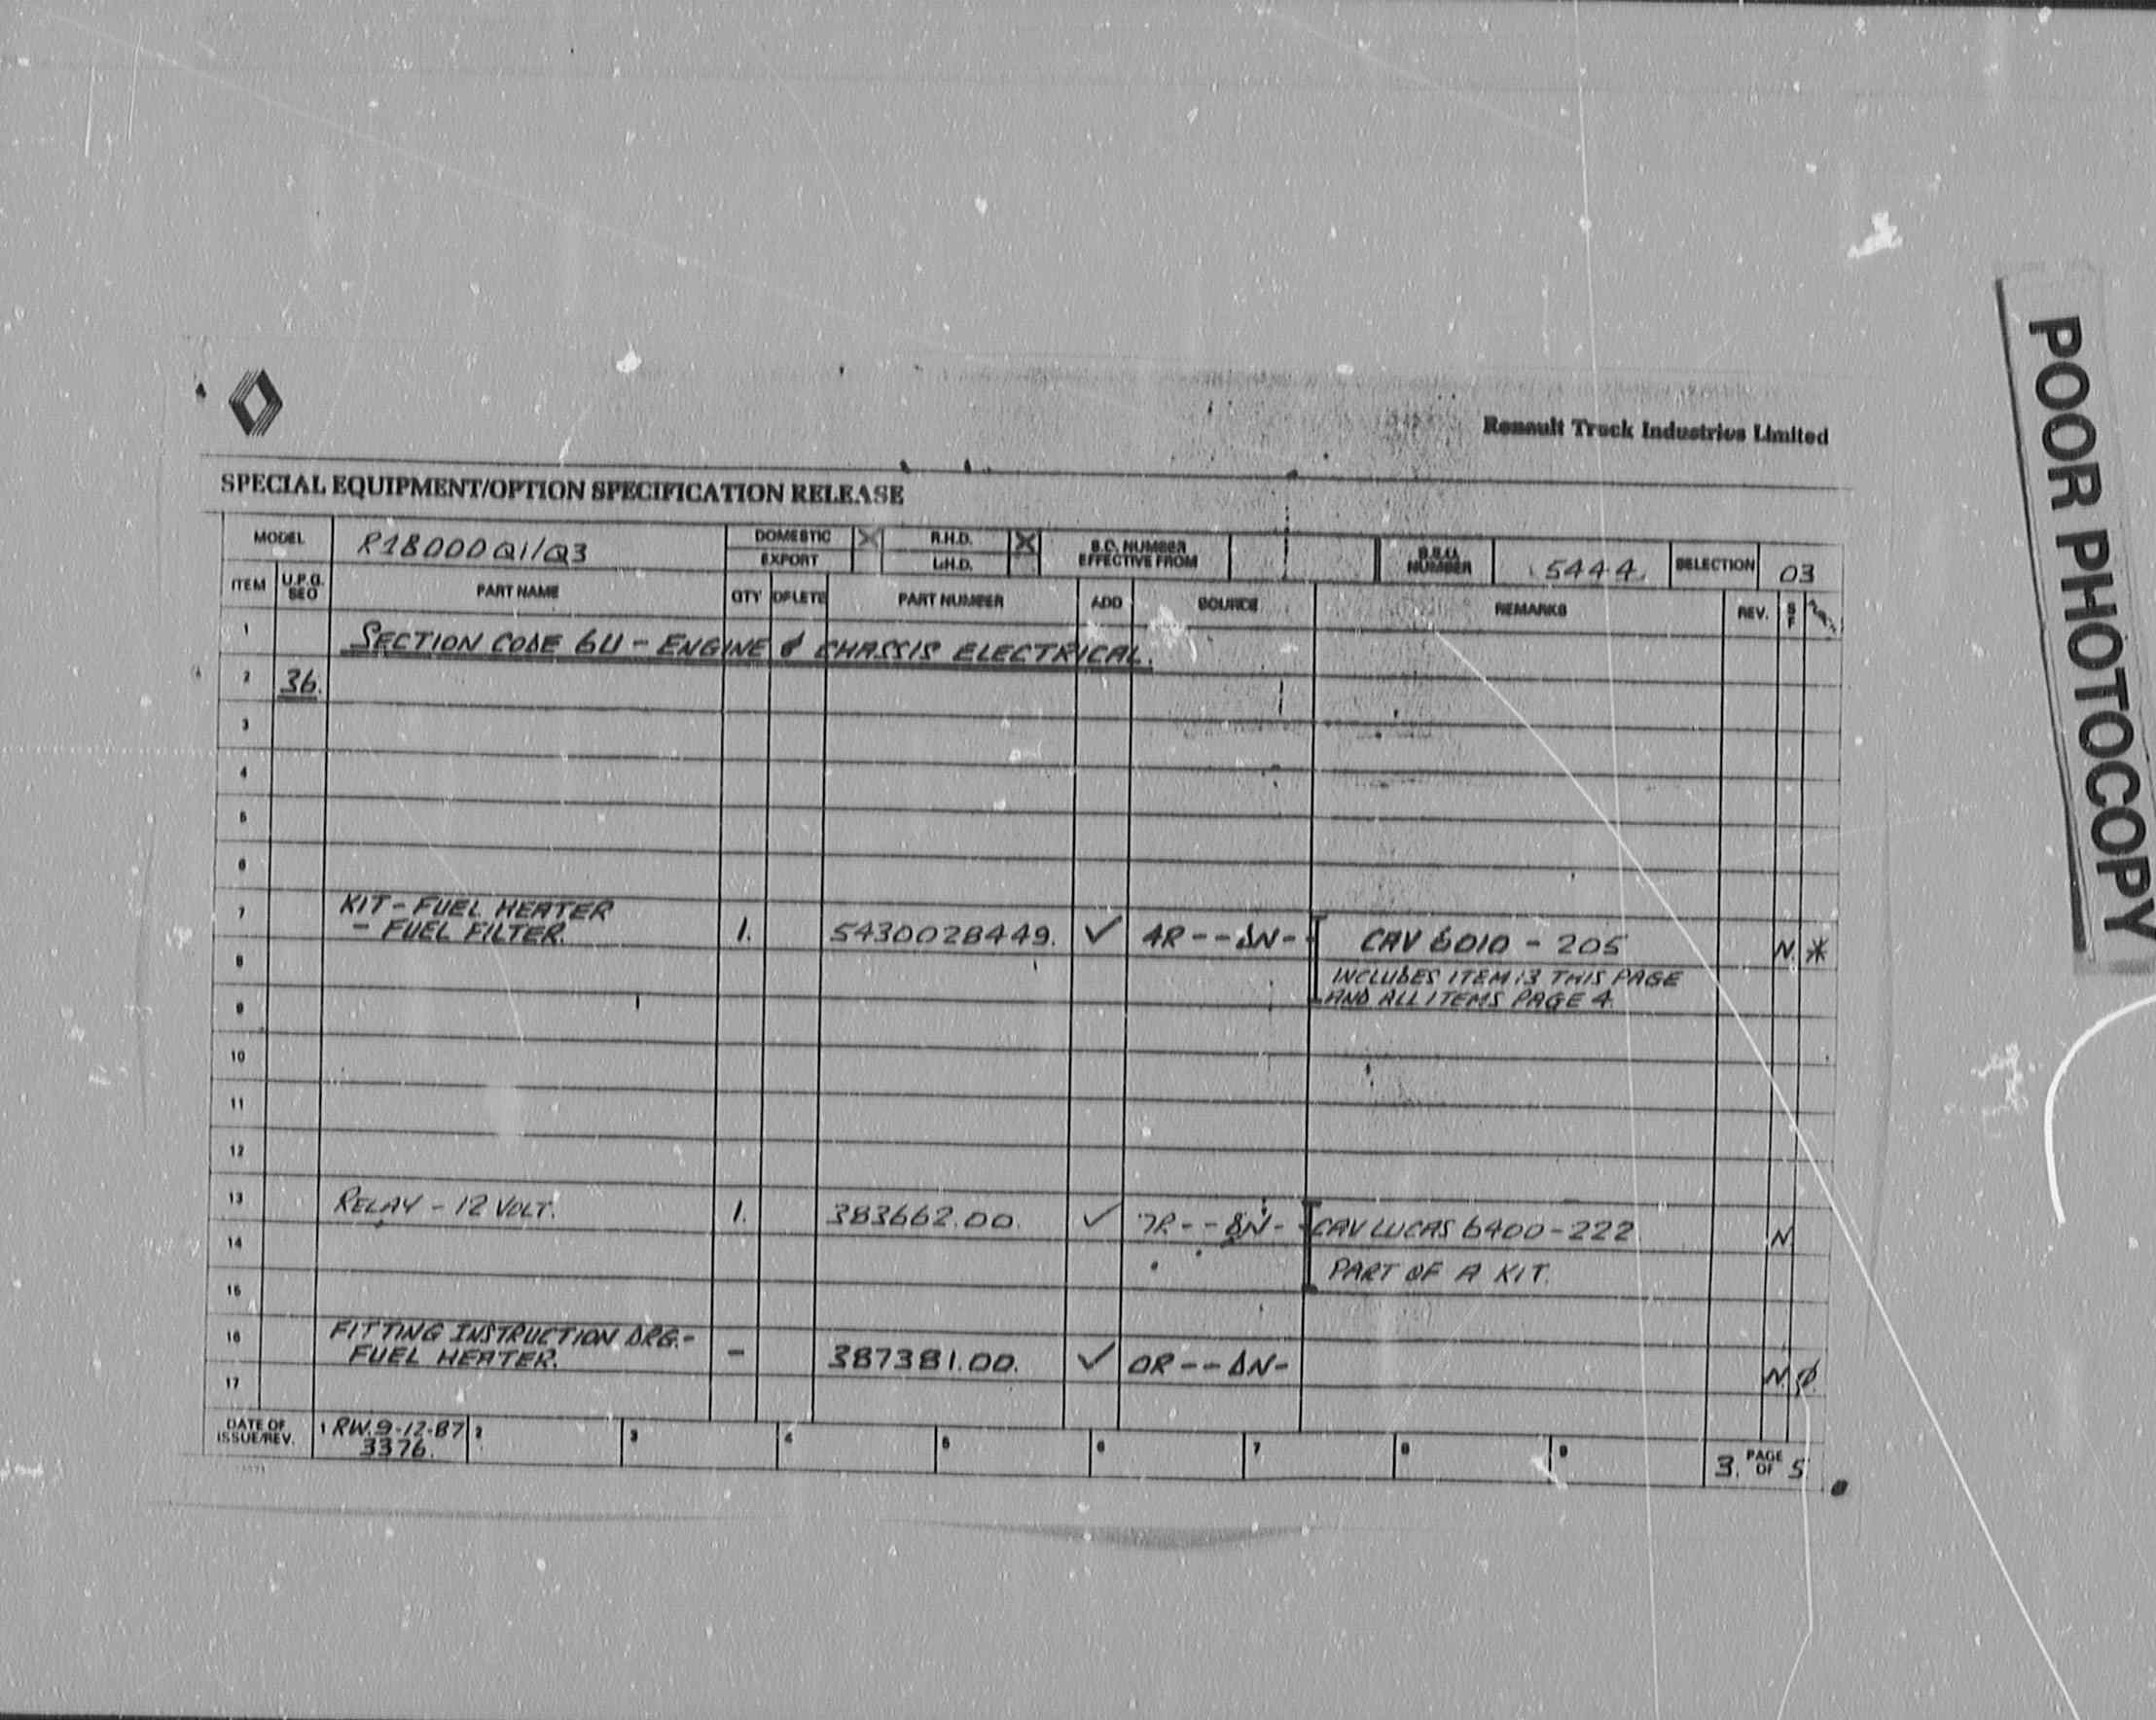 Renault Truck Industries Limited
SPECIAL EQUIPMENT/OPTION SPECIFICATION RELEASE
MODEL R18000Q1/Q3 DOMESTIC X R.H.D. X S.C. NUMBER 5444 SELECTION 03
EXPORT L.H.D. EFFECTIVE FROM NUMBER
ITEM U.P.G. SEQ PART NAME QTY DELETE PART NUMBER ADD SOURCE REMARKS REV. S F
1 SECTION CODE 6U - ENGINE & CHASSIS ELECTRICAL.
2 36.
3
4
5
6
7 KIT - FUEL HEATER
- FUEL FILTER. 1. 5430028449. ✓ 4R--ΔN- CAV 6010 - 205 N. *
8 INCLUDES ITEM 13 THIS PAGE
AND ALL ITEMS PAGE 4.
9
10
11
12
13 RELAY - 12 VOLT. 1. 383662.00. ✓ CAV LUCAS 6400-222 N
14 PART OF A KIT.
15
16 FITTING INSTRUCTION DRG.-
FUEL HEATER. - 387381.00. ✓ 0R--ΔN- N. Ø
17
DATE OF ISSUE/REV. 1 RW.9-12-87 2 3 4 5 6 7 8 9 3. PAGE OF 5
3376.
POOR PHOTOCOPY